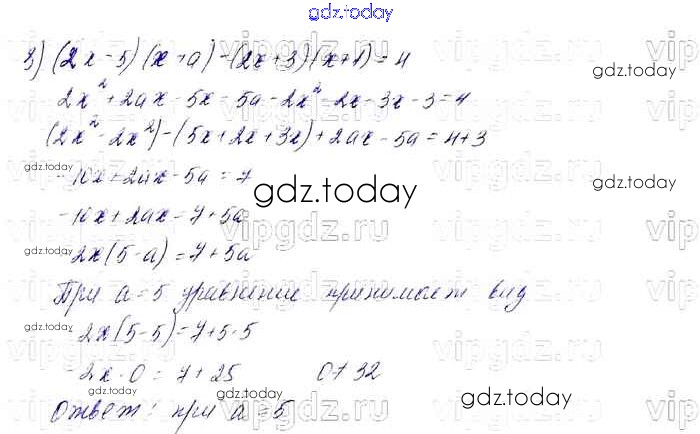 gdz.today
3) (2x-5)(x+a)-(2x+3)(x+1)=4
gdz.today
2x²+2ax-5x-5a-2x²-2x-3x-3=4
(2x²-2x²)-(5x+2x+3x)+2ax-5a=4+3
gdz.today
-10x+2ax-5a=7
gdz.today
gdz.today
-10x+2ax=7+5a
-2x(5-a)=7+5a
gdz.today
При a=5 уравнение принимает вид
gdz.today
-2x(5-5)=7+5·5
-2x·0=7+25 0≠32
gdz.today
gdz.today
Ответ: при a=5
vipgdz.ru